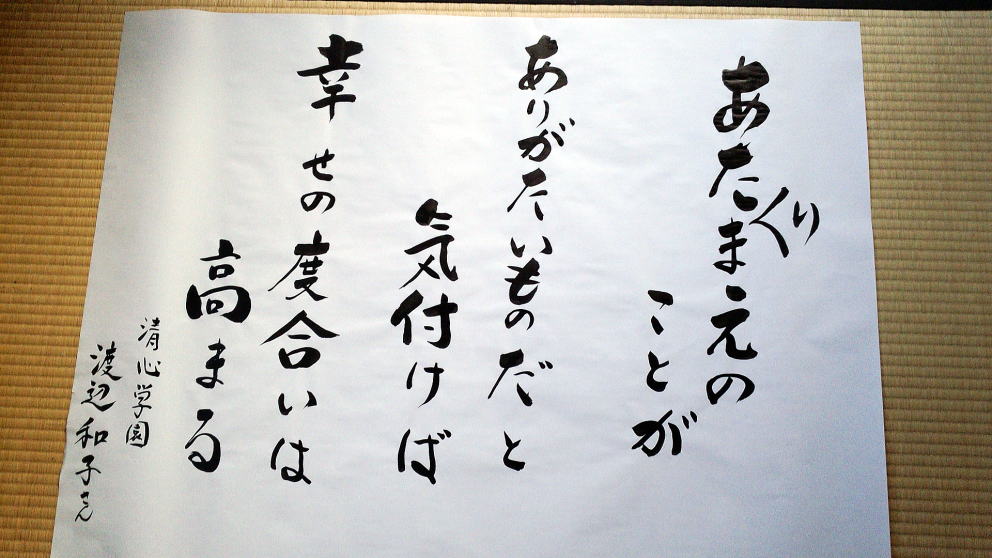 あたりまえの
ことが
ありがたいものだと
気付けば
幸せの度合いは
高まる
清心学園
渡辺和子さん